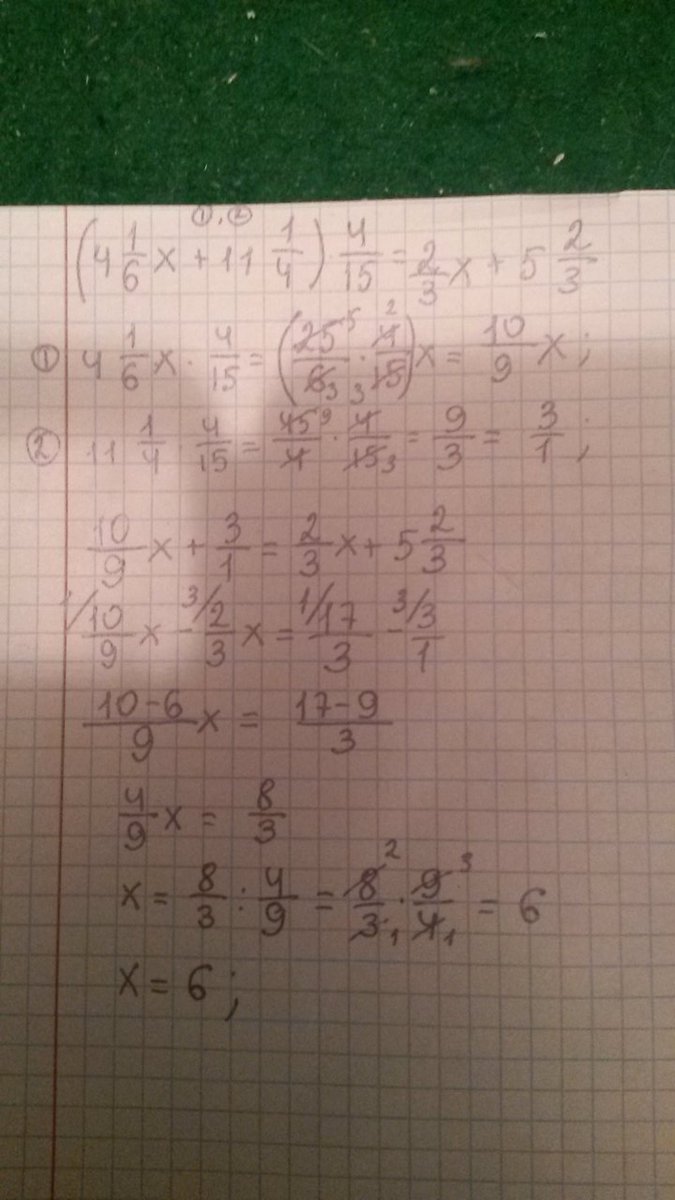 ① · ②
(4 1/6 x + 11 1/4) · 4/15 = 2/3 x + 5 2/3
① 4 1/6 x · 4/15 = (25⁵/6₃ · 4²/15₃) x = 10/9 x ;
② 11 1/4 · 4/15 = 45⁹/4 · 4/15₃ = 9/3 = 3/1 ;
10/9 x + 3/1 = 2/3 x + 5 2/3
¹⁄ 10/9 x - ³⁄ 2/3 x = ¹⁄ 17/3 - ³⁄ 3/1
10-6/9 x = 17-9/3
4/9 x = 8/3
x = 8/3 : 4/9 = 8²/3₁ · 9³/4₁ = 6
x = 6 ;